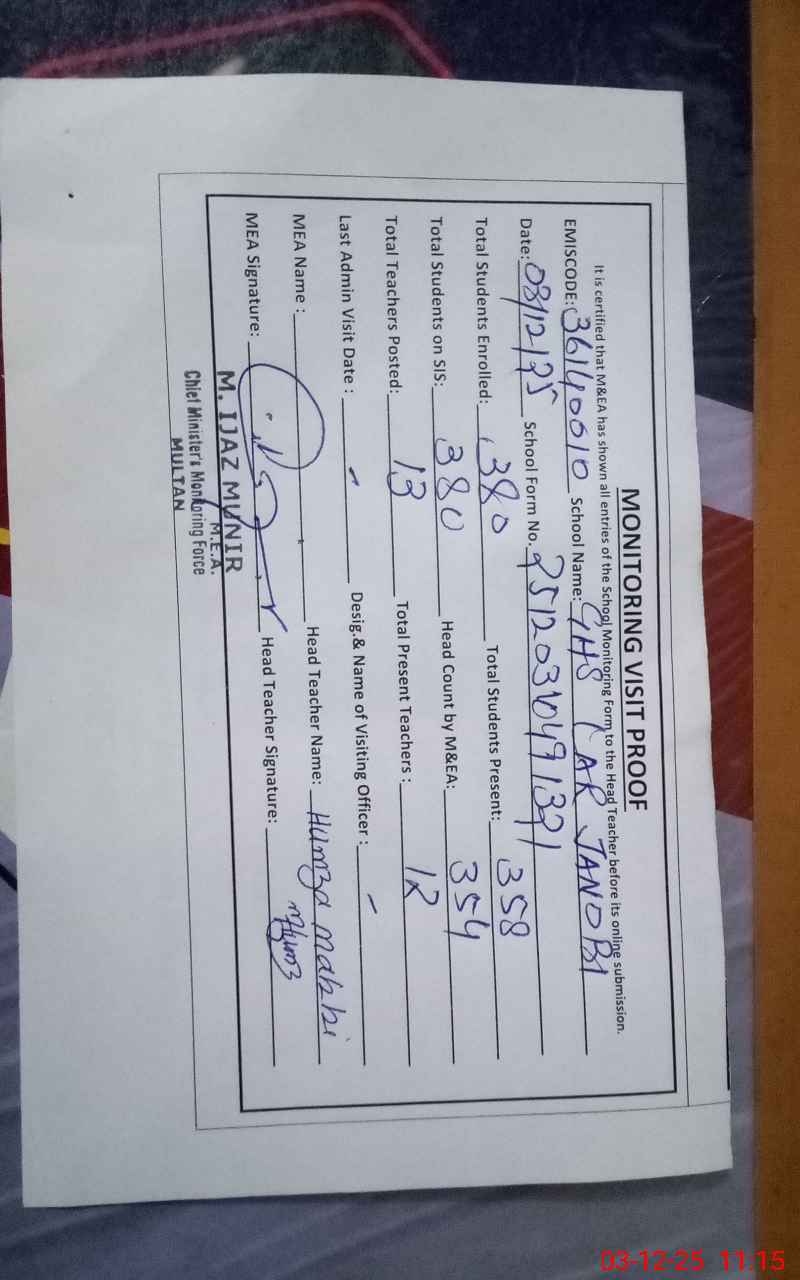 MONITORING VISIT PROOF
It is certified that M&EA has shown all entries of the School Monitoring Form to the Head Teacher before its online submission.
EMISCODE: 36140010 School Name: GHS LAR JANOBI
Date: 03/12/25 School Form No. 25120310491391
Total Students Enrolled: 380 Total Students Present: 358
Total Students on SIS: 380 Head Count by M&EA: 354
Total Teachers Posted: 13 Total Present Teachers : 12
Last Admin Visit Date : - Desig.& Name of Visiting Officer : -
MEA Name : Head Teacher Name: Humza
MEA Signature: Head Teacher Signature:
M. IJAZ MUNIR
M.E.A.
Chief Minister's Monitoring Force
MULTAN
03-12-25 11:15